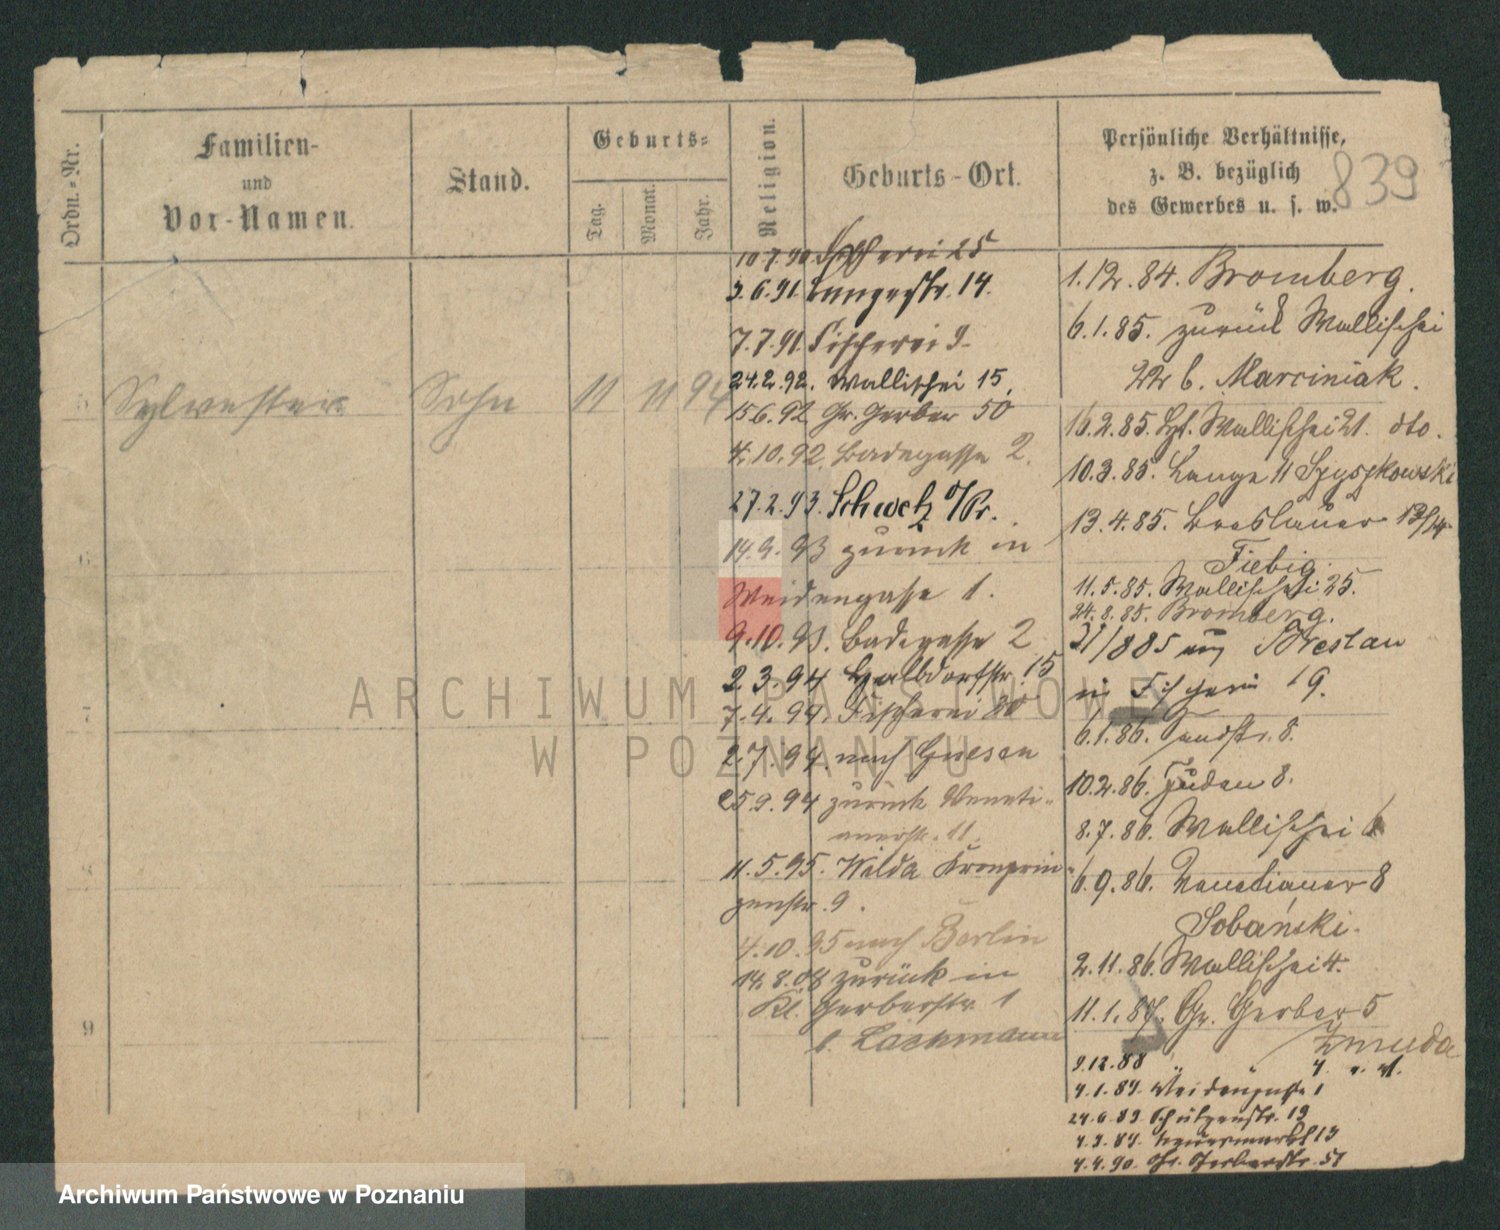 Ordn.-Nr.
Familien-
und
Vor-Namen.
Stand.
Geburts-
Tag.
Monat.
Jahr.
Religion.
Geburts-Ort.
Persönliche Verhältnisse,
z. B. bezüglich
des Gewerbes u. s. w.
839
5
Sylvester
Sohn
11
11
94
7
9
10.7.90 Fischerei 25
3.6.91. Langestr. 14.
7.7.91. Fischerei 9
24.2.92. Wallischei 15.
15.6.92 Gr. Gerber 50
4.10.92. Badegasse 2.
27.2.93. Schwetz
14.9.93 zurück in
Weidengasse 1.
9.10.93. Badegasse 2
2.3.94 Halbdorfstr. 15
7.4.94. Fischerei
2.7.94. nach Gnesen
25.9.94 zurück Veneti-
anerstr. 11.
11.5.95. Wilda Kronprin-
zenstr. 9.
4.10.95 nach Berlin
14.8.08 zurück in
Kl. Gerberstr. 1
b. Lachmann
1.12.84. Bromberg.
6.1.85. zurück Wallischei
22 b. Marciniak.
16.2.85. Wallischei 21. dto.
10.3.85. Lange 11 Szyszkowski
13.4.85. Breslauer 13/14
Fiebig.
11.5.85. Wallischei 25.
24.8.85. Bromberg.
Breslau
in Fischerei 19.
6.1.86. Sandstr. 8.
10.2.86. Juden 8.
8.7.86. Wallischei 6
6.9.86. Venetianer 8
Sobański.
2.11.86. Wallischei 4.
11.1.87. Gr. Gerber 5
Zmuda
9.12.88
4.1.89. Weidengasse 1
24.6.89. Schützenstr. 19
Neuermarkt 13
4.4.90. Gr. Gerberstr. 51
ARCHIWUM PAŃSTWOWE
W POZNANIU
Archiwum Państwowe w Poznaniu